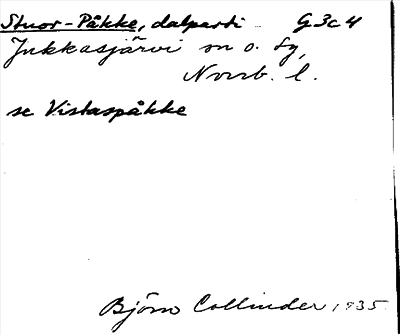 Stuor-Påkke, dalparti G3c4
Jukkasjärvi sn o. sg,
Norrb. l.
se Vistaspåkke
Björn Collinder 1935